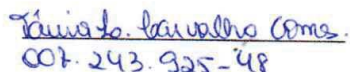 Tânia L. Carvalho Gomes.
007.243.925-48